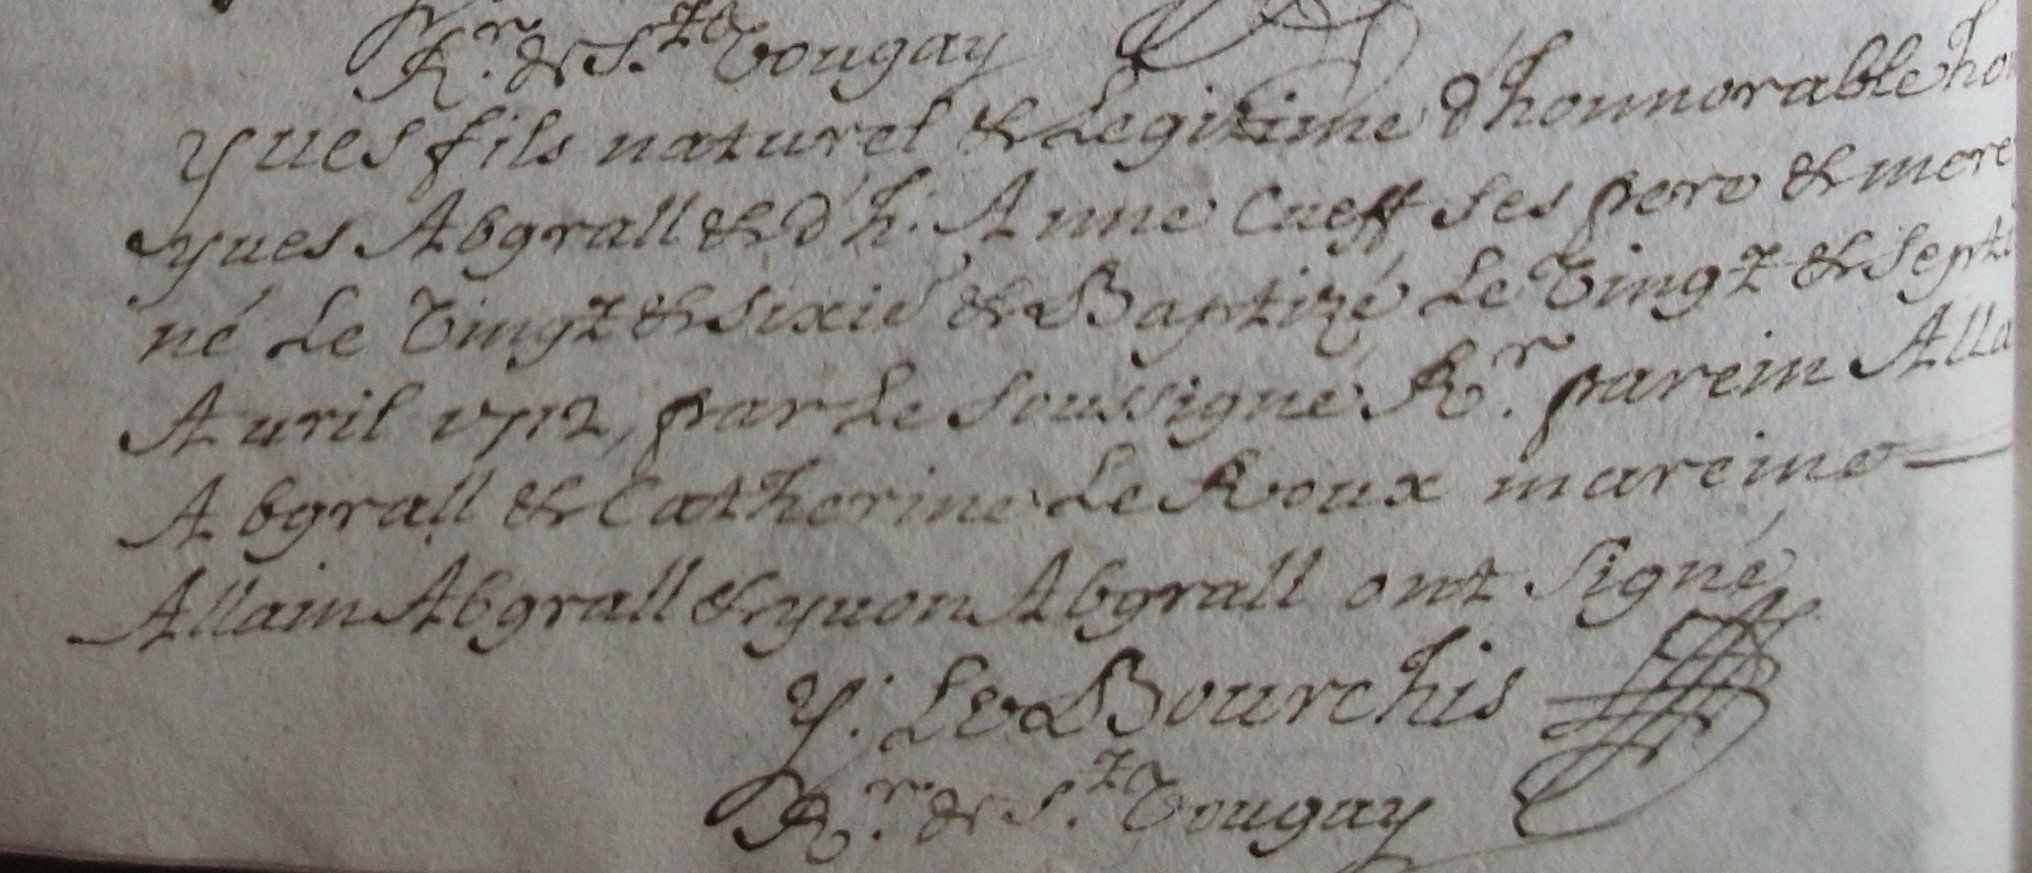 Rr. de St. Vougay
yues fils naturel & Legitime d'honnorable ho
yues Abgrall & d'h. Anne Cueff ses pere & mere
né Le Vingt & sixie & Baptizé Le Vingt & septi
Auril 1712, par Le soussigné Rr. parein Alla
Abgrall & Catherine Le Roux mareine
Allain Abgrall & yuon Abgrall ont signé
Y. Le Bourchis
Rr. de St. Vougay